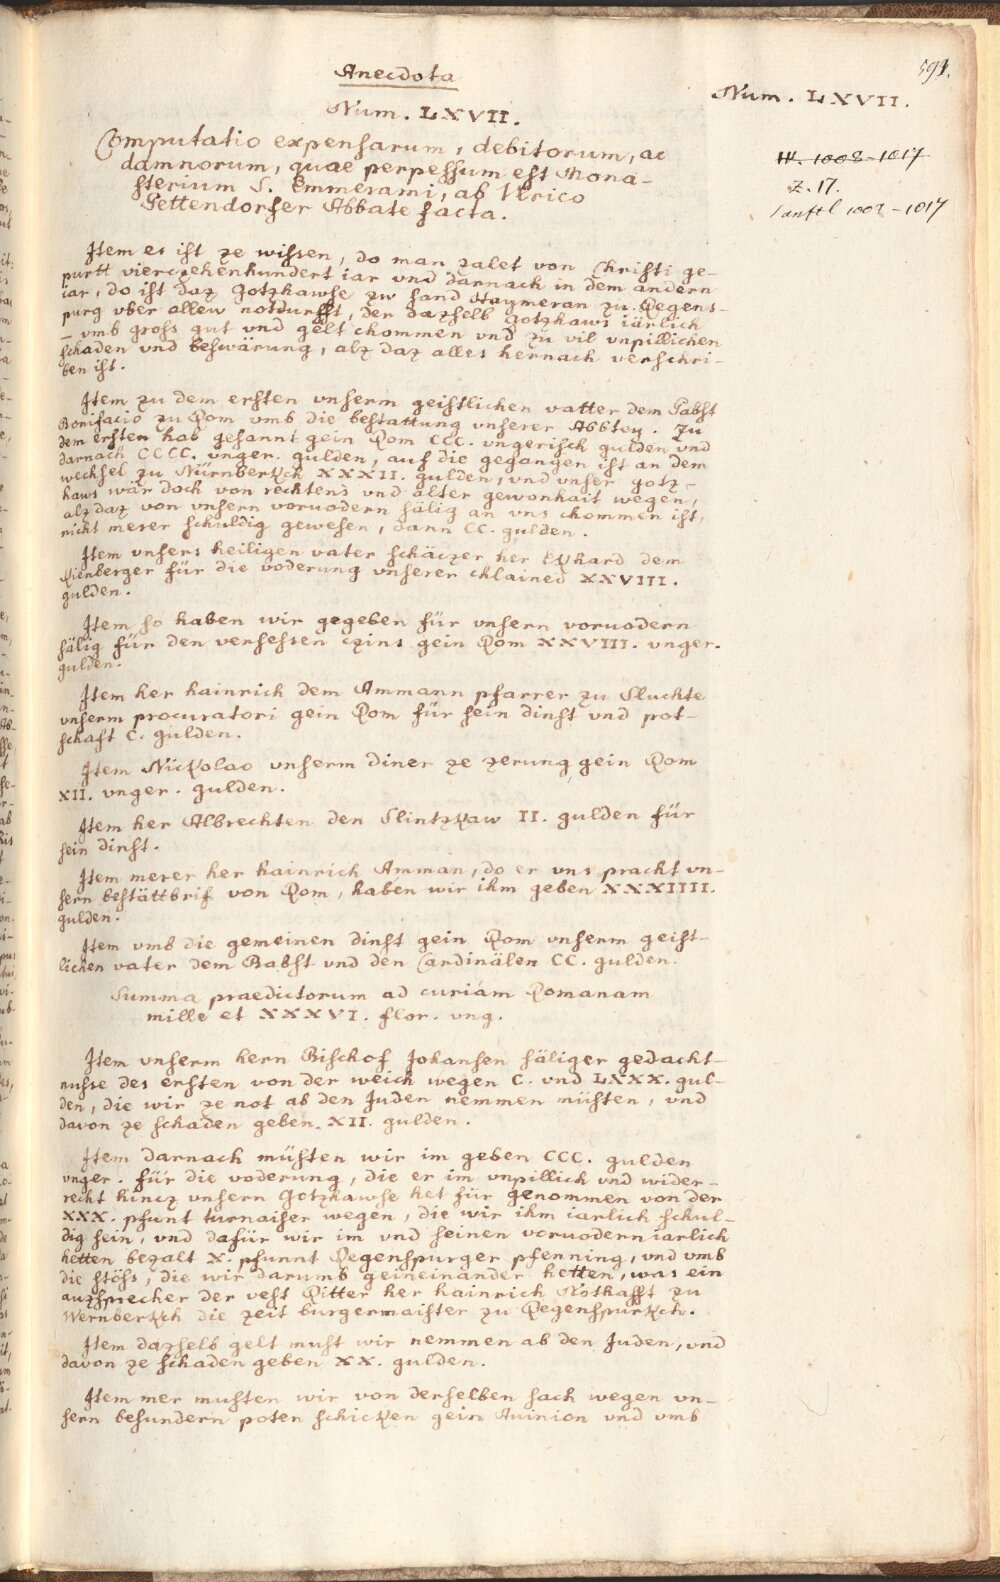 591.
Anecdota
Num. LXVII.
Num. LXVII.
Computatio expensarum, debitorum, ac
damnorum, quae perpessum est Mona-
sterium S. Emmerami, ab Ulrico
Pettendorfer Abbate facta.
W. 1008-1017
Z. 17.
Sanftl 1008-1017
Item es ist ze wissen, do man zalet von Christi ge-
purtt vierczehenhundert iar vnd darnach in dem andern
iar, do ist daz Gotzhawse zw sand Haymeran zu Regens-
purg vber allew notdurfft, der dazselb Gotzhaws iärlich
– vmb gross gut vnd gelt chommen vnd zu vil vnpillichen
schaden vnd beswärung, alz daz alles hernach verschri-
ben ist.
Item zu dem ersten vnserm geistlichen vatter dem Pabst
Bonifacio zu Rom vmb die bestattung vnserer Abbtey. Zu
dem ersten hab gesannt gein Rom CCC. vngerisch gulden vnd
darnach CCCC. vnger. gulden, auf die gegangen ist an dem
wechsel zu Nürnberkch XXXII. gulden, vnd vnser gotz-
haws wär doch von rechtens vnd alter gewonhait wegen,
alz daz von vnsern voruodern sälig an vns chommen ist,
nicht merer schuldig gewesen, dann CC. gulden.
Item vnsers heiligen vater schäczer her Ekhard dem
Rienberger für die voderung vnserer chlained XXVIII.
gulden.
Item so haben wir gegeben für vnsern voruodern
sälig für den versessen czins gein Rom XXVIII. vnger.
gulden.
Item her hainrich dem Ammann pfarrer zu Sluchte
vnserm procuratori gein Rom für sein dinst vnd pot-
schaft C. gulden.
Item Nickolao vnserm diner ze zerung gein Rom
XII. vnger. gulden.
Item her Albrechten den Slintzkaw II. gulden für
sein dinst.
Item merer her hainrich Amman, do er vns pracht vn-
sern bestättbrif von Rom, haben wir ihm geben XXXIIII.
gulden.
Item vmb die gemeinen dinst gein Rom vnserm geist-
lichen vater dem Babst vnd den Cardinälen CC. gulden.
Summa praedictorum ad curiam Romanam
mille et XXXVI. flor. vng.
Item vnserm hern Bischof Johansen säliger gedächt-
nusse des ersten von der weich wegen C. vnd LXXX. gul-
den, die wir ze not ab den Juden nemmen müsten, vnd
davon ze schaden geben XII. gulden.
Item darnach müsten wir im geben CCC. gulden
vnger. für die voderung, die er im vnpillich vnd wider-
recht hincz vnsern Gotzhawse het für genommen von der
XXX. pfunt turnaiser wegen, die wir ihm iarlich schul-
dig sein, vnd dafür wir im vnd seinen voruodern iarlich
hetten bezalt X. pfunnt Regenspurger pfenning, vnd vmb
die stöss, die wir darumb geineinander hetten, was ein
auzsprecher der vest Ritter her hainrich Nothafft zu
Wernberkch die zeit burgermaister zu Regenspurkch.
Item dazselb gelt must wir nemmen ab den Juden, vnd
davon ze schaden geben XX. gulden.
Item mer musten wir von derselben sach wegen vn-
sern besundern poten schicken gein Auinion vnd vmb